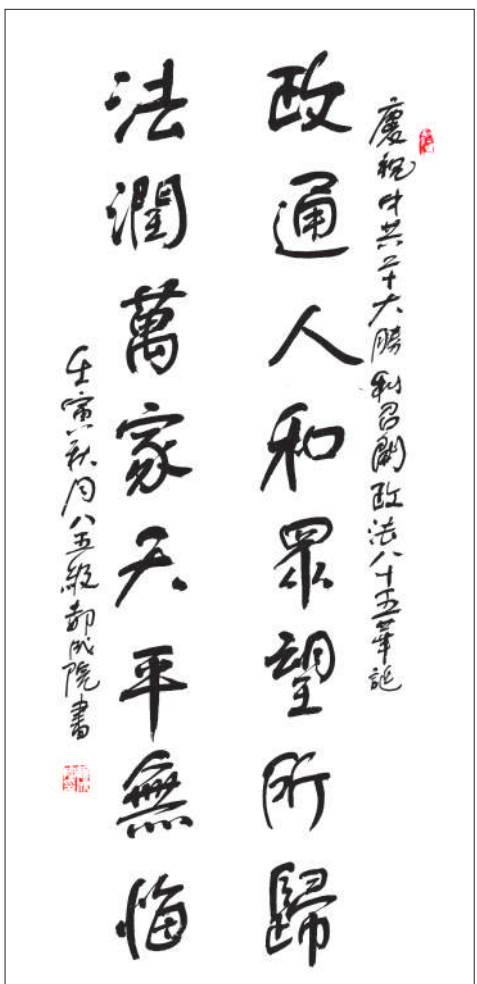 慶祝中共二十大勝利召開政法八十五華誕
政通人和眾望所歸
法潤萬家天平無悔
壬寅秋月八五級郝成院書